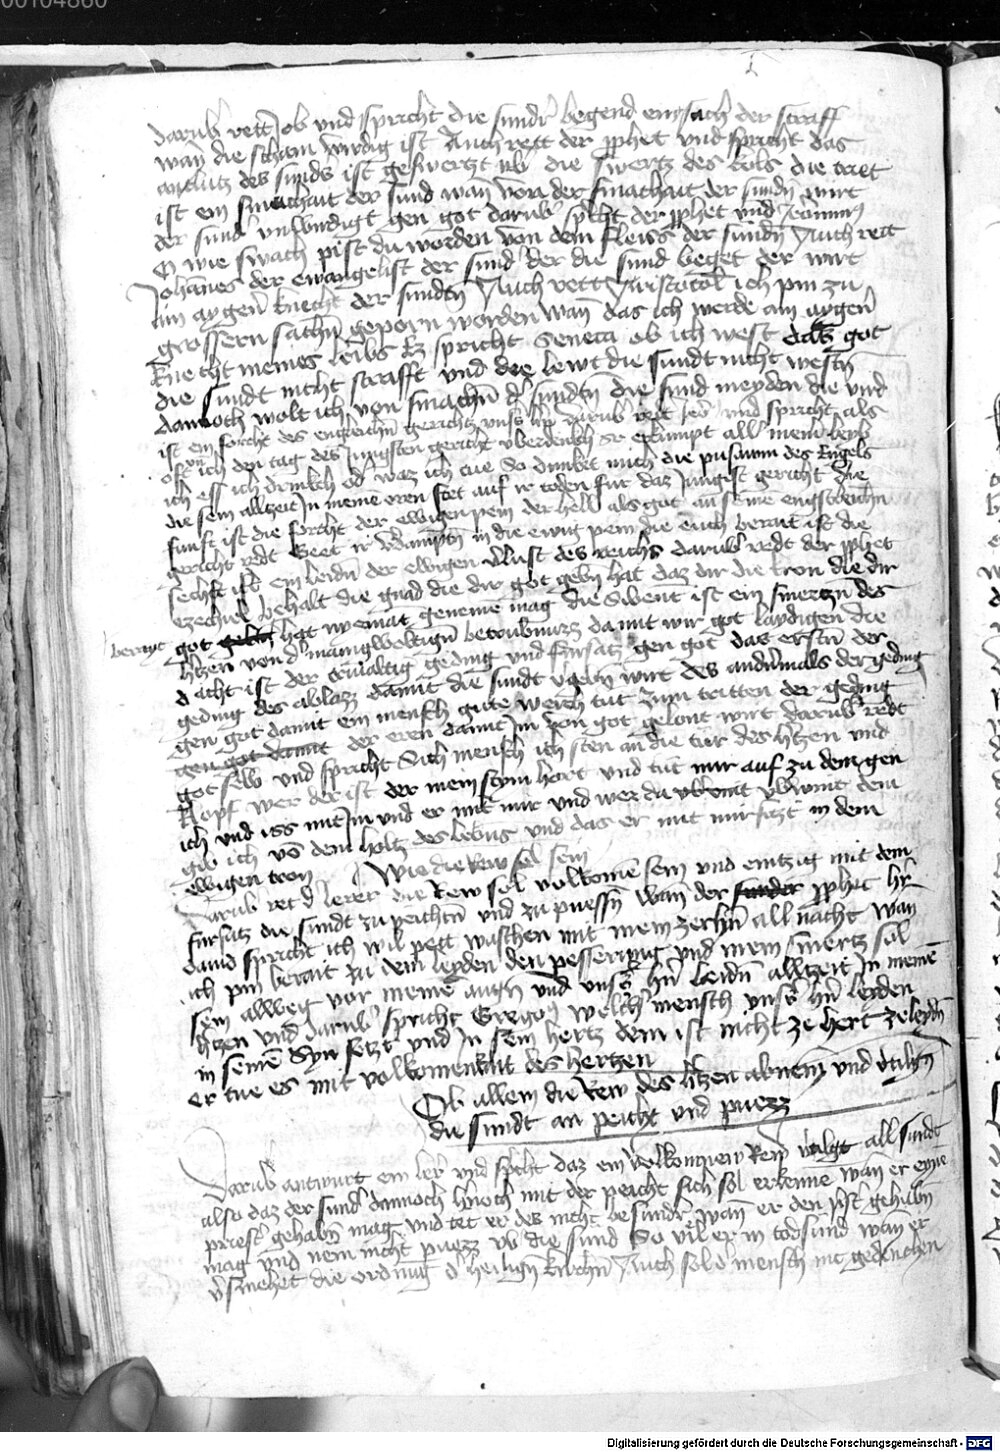 00104860
darub rett Job und spricht die sundr begend ein sach der straff
wan die scham wirdig ist Auch rett der pphet und spricht das
antlutz des sunds ist geswerzt ub die swertz des kols die trit
ist ein smachait der sund wan von der smachait der sundn wirt
der sund unwirdigt gen got darub spcht der pphet und Jeromus
O wie swach pist du worden von dem fleiss der sundn Auch rett
Johanes der ewangelist der sund der die sund beget der wirt
ain aygen knecht der sundn Auch rett Aristotol ich pin zu
grossern sachn geporn worden wan das ich werde am aygen
knecht meines leibs Ez spricht Seneca ob ich west daz got
die sundt nicht strafft und die lewt die sundt nicht westn
dannoch wolt ich von smachn d sundtn die sund meyden die vird
ist ein forcht des engstlichn gerichtz unss hn darub rett Jero und spricht als
oft ich den tag des Jungsten gericht uberdenkch so erkumpt all mein leyb
ich ess ich drinkch od waz ich tue So dunket mich die pusawn des Engels
die sein allzeit In meine oren stet auf ir toden fur daz Jungist gericht Die
funft ist die forcht der ewigen pein der hell als got an seinem engstlichn
gericht redt Geet ir vdampten in die ewig pein die euch berait ist die
sechst ist ein leidn der ewigen vlust des reichs darub redt der pphet
ezechiel behalt die gnad die dir got gebn hat daz dir die kron die dir
berayt got hat nyemant geneme mag die Sibent ist ein smertzn des
htzen von d manigweltign betrubnuzz damit wir got laydigen die
d acht ist der drivaltig geding und fursatz gen got das erstn der
geding des ablazz damit die sundt vgebn wirt des andermals der geding
gen got damit ein mensch gute werch tut zum dritten der geding
gen got damit der eren damit Im von got gelont wirt darub redt
got selb und spricht Sich mensch ich sten an die tur des htzen und
klopf wer der ist der mein stym hort und tut mir auf zu dem gen
ich und iss mit Im und er mit mir und wer da ubwint dem
gib ich vo dem holtz des lebens und das er mit mir sitzt in dem
ewigen tron Wie die Rew sol sein
Darub ret d lerer die Rew sol volkomen sein und eintzig mit dem
fursatz die sundt zu peichtn und zu puessn wan der pphet hr
david spricht ich wil pett waschen mit mein zerhn all nacht wan
ich pin berait zu dem leyden den pesserung und mein smertz sol
sein allweg vor meine augn und unss hn leidn allzeit In meinem
htzen und darub spricht Gregory welch mensch unss hn leyden
in seinem Syn setzt und In sein hertz dem ist nicht ze hert zeleydn
er tue es mit volkomenhait des hertzen
Ob allein die Rew des htzen abnem und vtilgn
die sundt an peicht und puezz
Darub antwurt ein ler und spcht daz ein volkomne Rew vtilgt all sundt
also daz der sund dannoch hinoch mit der peicht sich sol erkennen wan er eyne
priest gehabn mag und tet er des nicht besundr wann er den pst gehabn
mag und nem nicht puezz ub die sund So viel er in todsund wan er
vsmehet die ordnug d heilign kirchn Auch sol d mensch nit gedenchen
Digitalisierung gefördert durch die Deutsche Forschungsgemeinschaft - DFG